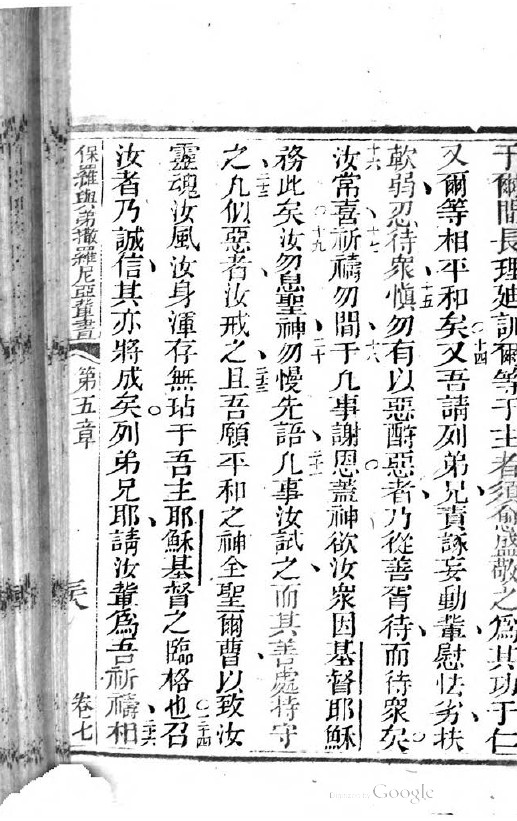 于爾間長理廸訓爾等于主者須愈盛敬之爲其功于仁
又爾等相平和矣又吾請列弟兄責諑妄動輩慰怯劣扶
十四
軟弱忍待衆愼勿有以惡酧惡者乃從善胥待而待衆矣
十五
汝常喜祈禱勿間于凡事謝恩蓋神欲汝衆因基督耶穌
十六 十七 十八
務此矣汝勿息聖神勿慢先語凡事汝試之而其善處持守
十九 二十 二十一
之凡似惡者汝戒之且吾願平和之神全聖爾曹以致汝
二十二 二十三
靈魂汝風汝身渾存無玷于吾主耶穌基督之臨格也召
二十四
汝者乃誠信其亦將成矣列弟兄耶請汝輩爲吾祈禱相
二十六
保羅與弟撒羅尼亞輩書 第五章 卷七
Google